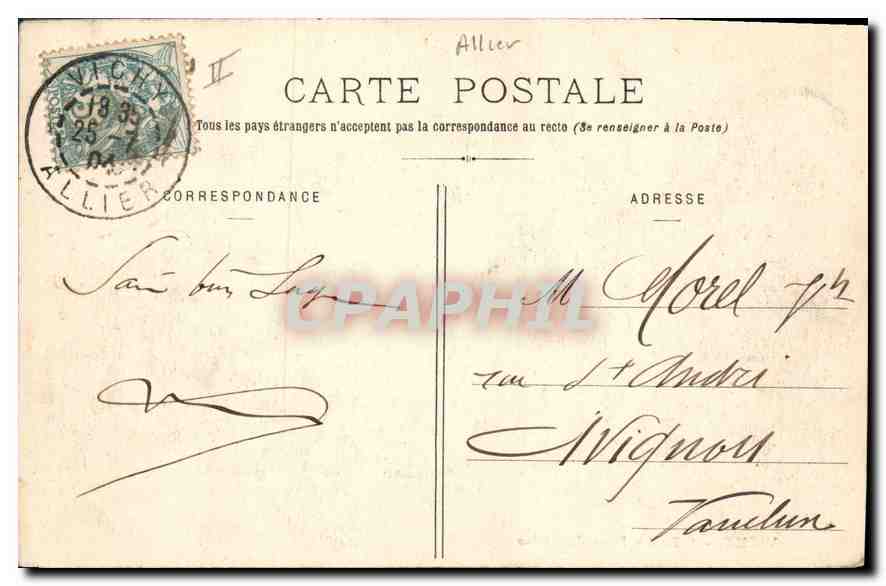 Allier
II
VICHY
18 35
25 -7
04
ALLIER
CARTE POSTALE
Tous les pays étrangers n'acceptent pas la correspondance au recto (Se renseigner à la Poste)
CORRESPONDANCE
ADRESSE
CPAPHIL
M Morel
rue St André
Avignon
Vaucluse